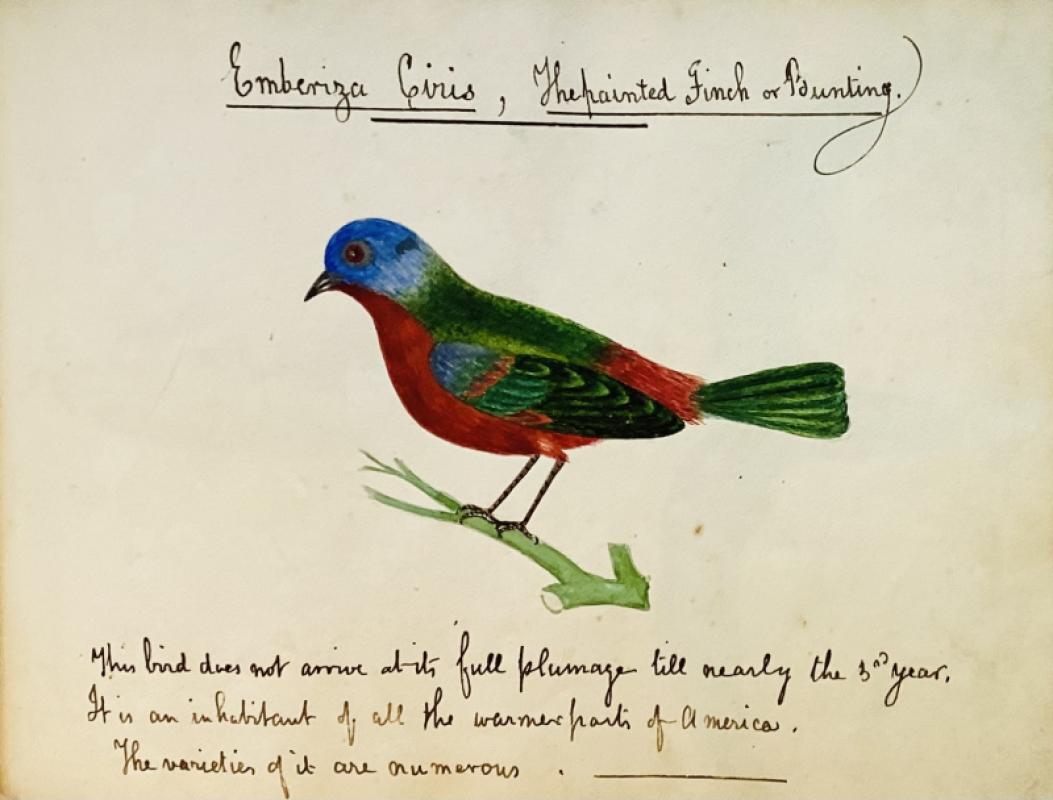 Emberiza Ciris, The painted Finch or Bunting.
This bird does not arrive at its full plumage till nearly the 3rd year.
It is an inhabitant of all the warmer parts of America.
The varieties of it are numerous.